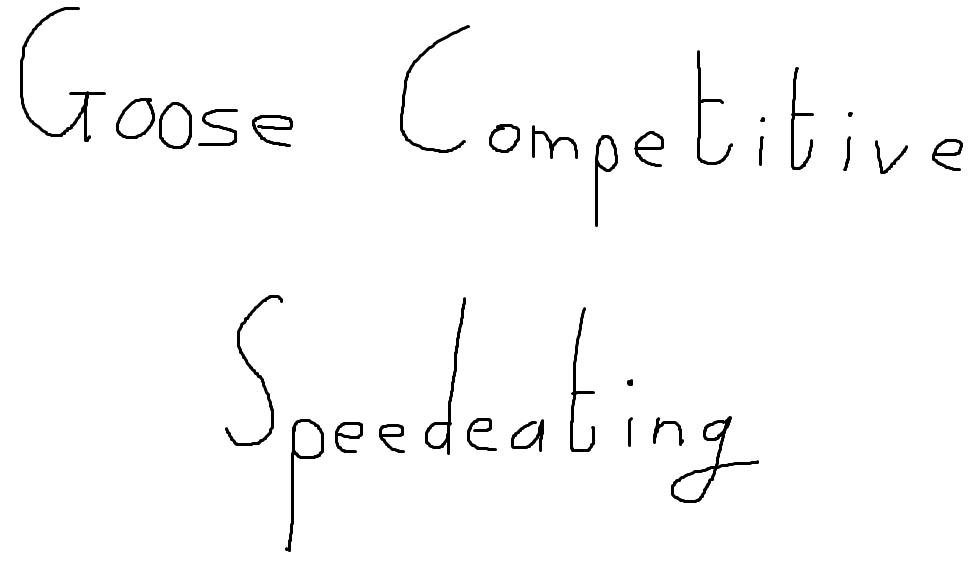 Goose Competitive
Speedeating